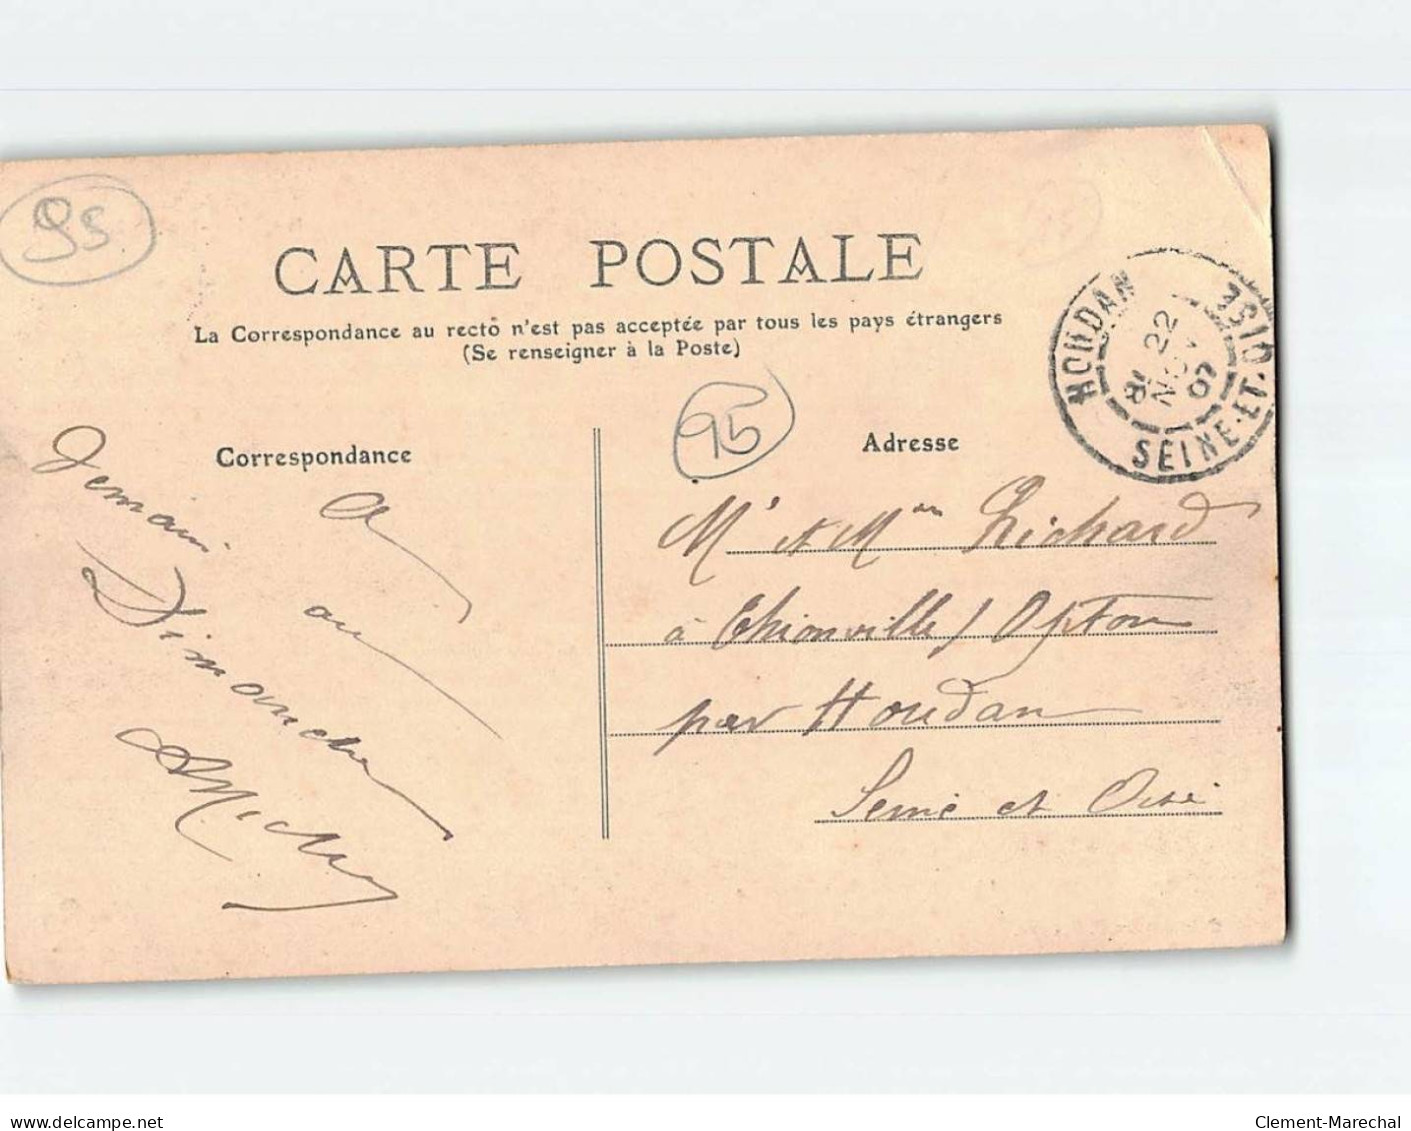 95
CARTE POSTALE
La Correspondance au recto n'est pas acceptée par tous les pays étrangers
(Se renseigner à la Poste)
HOUDAN
8E 22
NOV
07
SEINE-ET-OISE
95
Correspondance
Adresse
A
demain
ou
Dimanche
Mr et Mme Richard
à Thionville s/ Opton
par Houdan
Seine et Oise
www.delcampe.net
Clement-Marechal